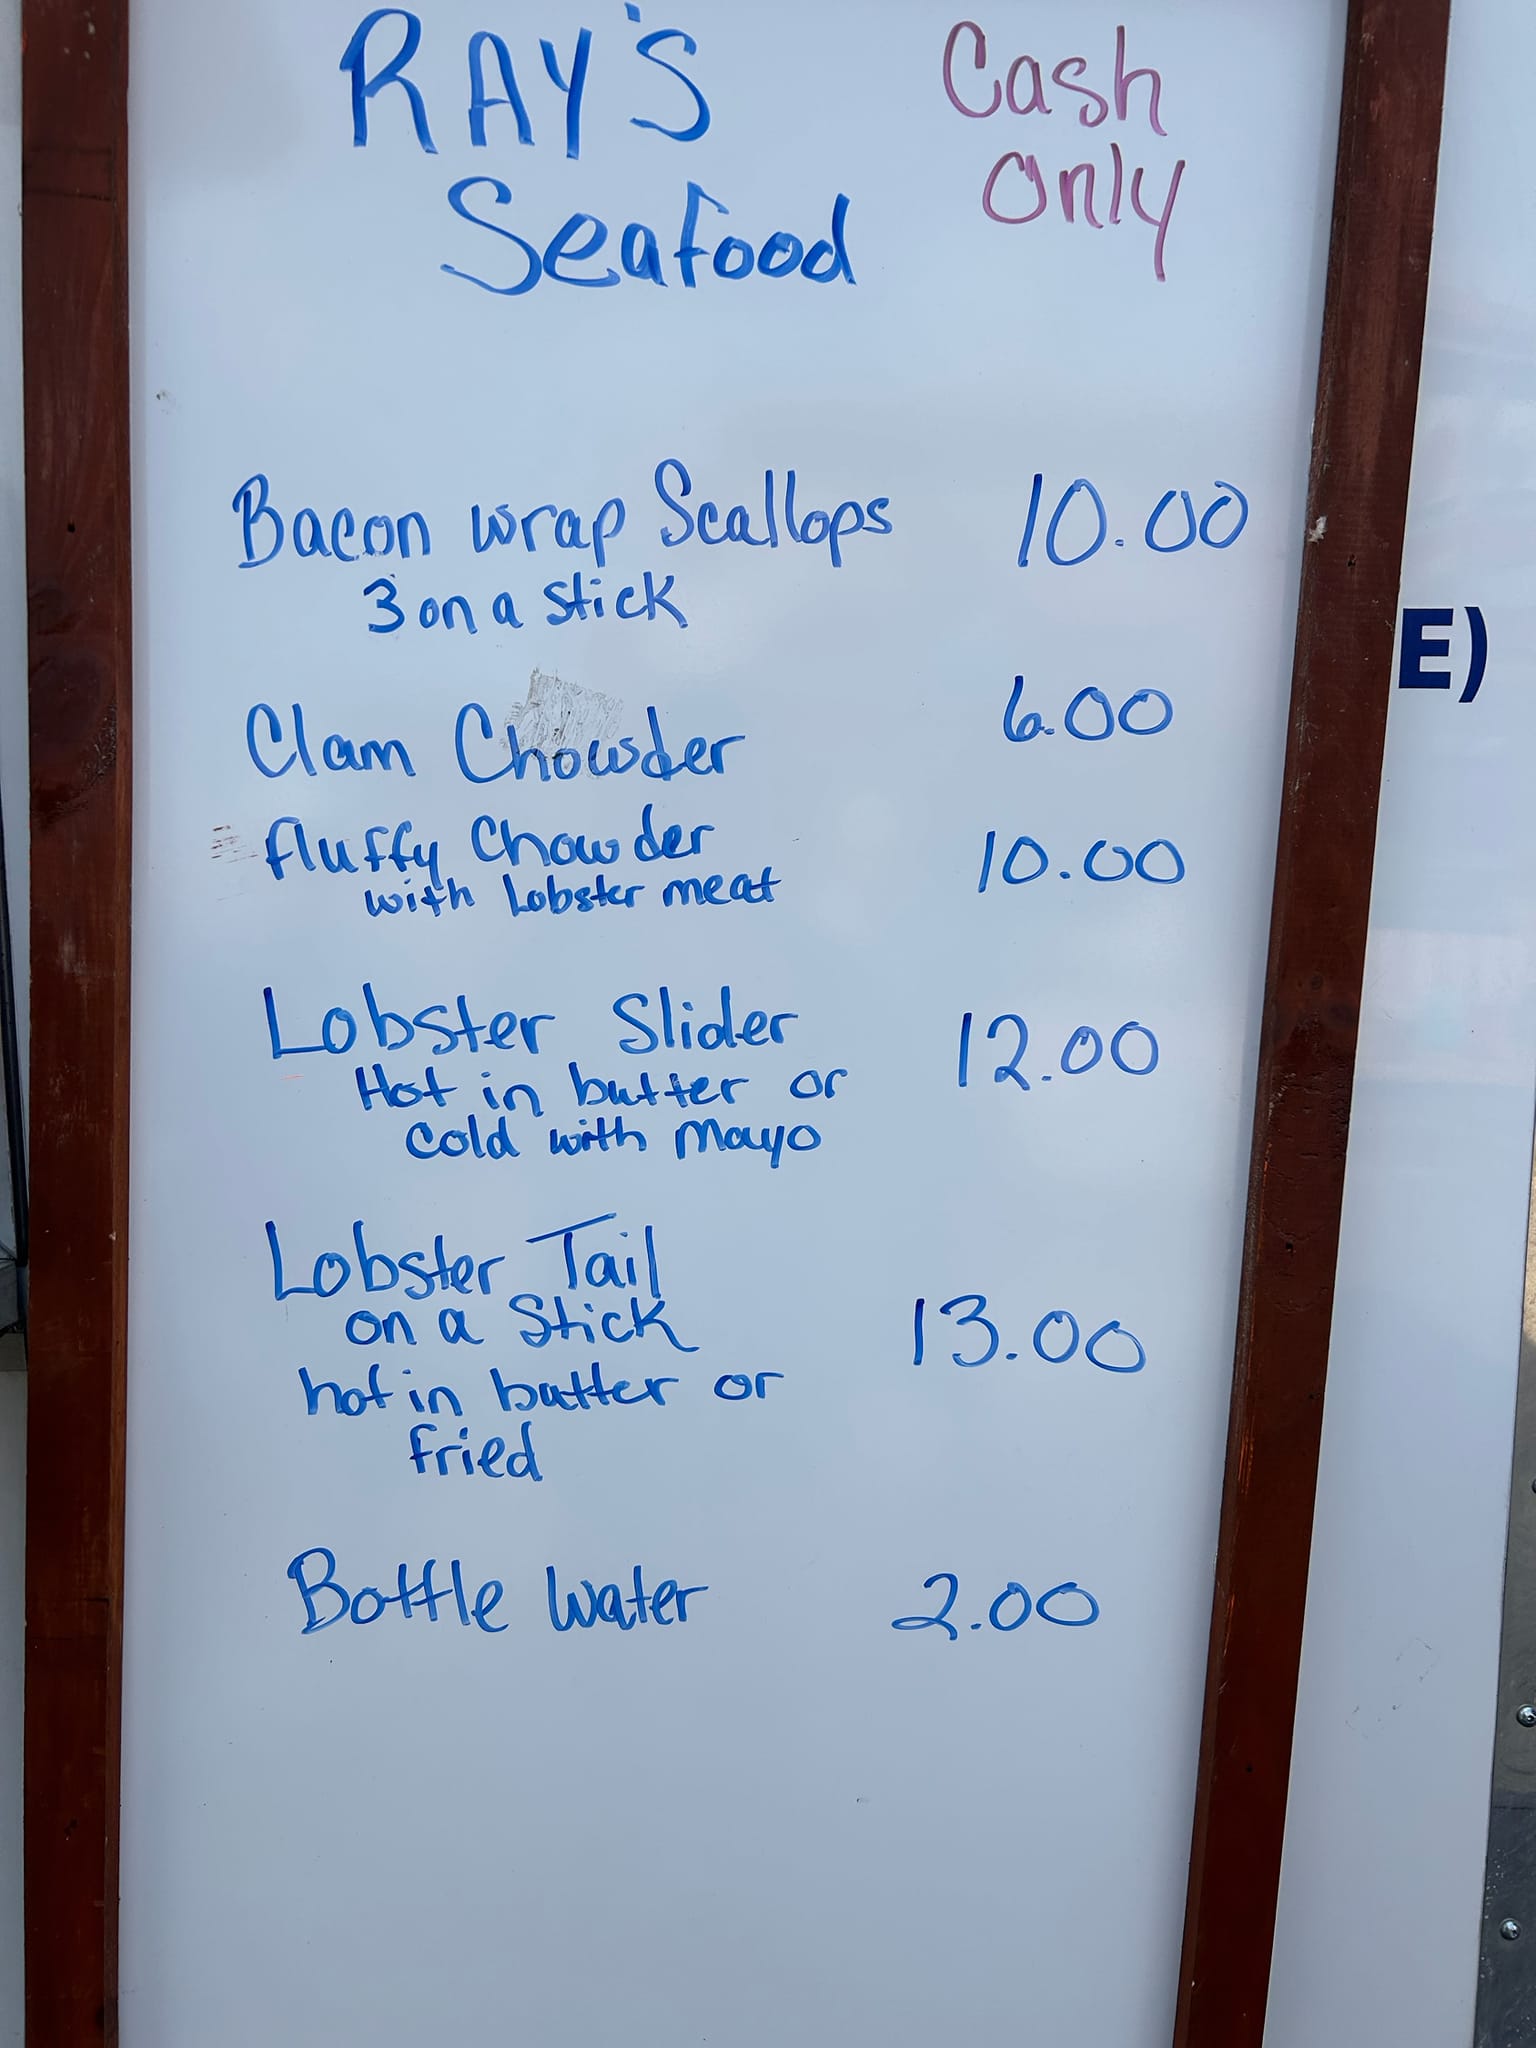 RAY'S
Seafood
Cash
Only
Bacon wrap Scallops 10.00
3 on a stick
Clam Chowder 6.00
fluffy Chowder 10.00
with Lobster meat
Lobster Slider 12.00
Hot in butter or
cold with Mayo
Lobster Tail
on a Stick 13.00
hot in butter or
fried
Bottle Water 2.00
E)